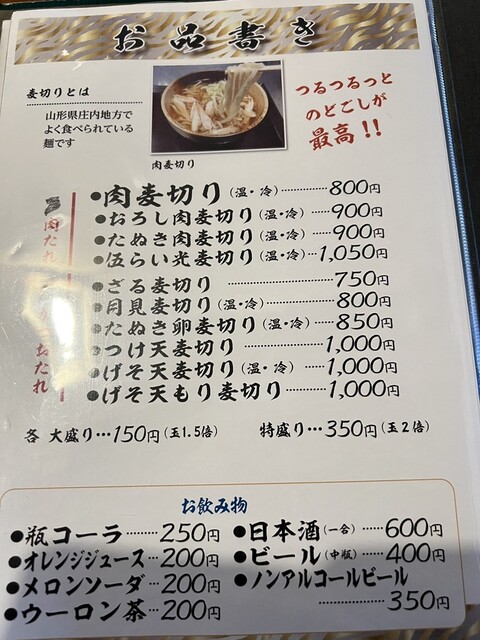 お品書き
麦切りとは
山形県庄内地方で
よく食べられている
麺です
肉麦切り
つるつるっと
のどごしが
最高!!
肉たれ
●肉麦切り(温・冷)…………800円
●おろし肉麦切り(温・冷)……900円
●たぬき肉麦切り(温・冷)……900円
●伍らい光麦切り(温・冷)…1,050円
たれ
●ざる麦切り………………750円
●月見麦切り(温・冷)…………800円
●たぬき卵麦切り(温・冷)……850円
●つけ天麦切り……………1,000円
●げそ天麦切り(温・冷)……1,000円
●げそ天もり麦切り………1,000円
各 大盛り…150円(玉1.5倍) 特盛り…350円(玉2倍)
お飲み物
●瓶コーラ………250円
●オレンジジュース…200円
●メロンソーダ…200円
●ウーロン茶…200円
●日本酒(一合)……600円
●ビール(中瓶)……400円
●ノンアルコールビール
………………350円